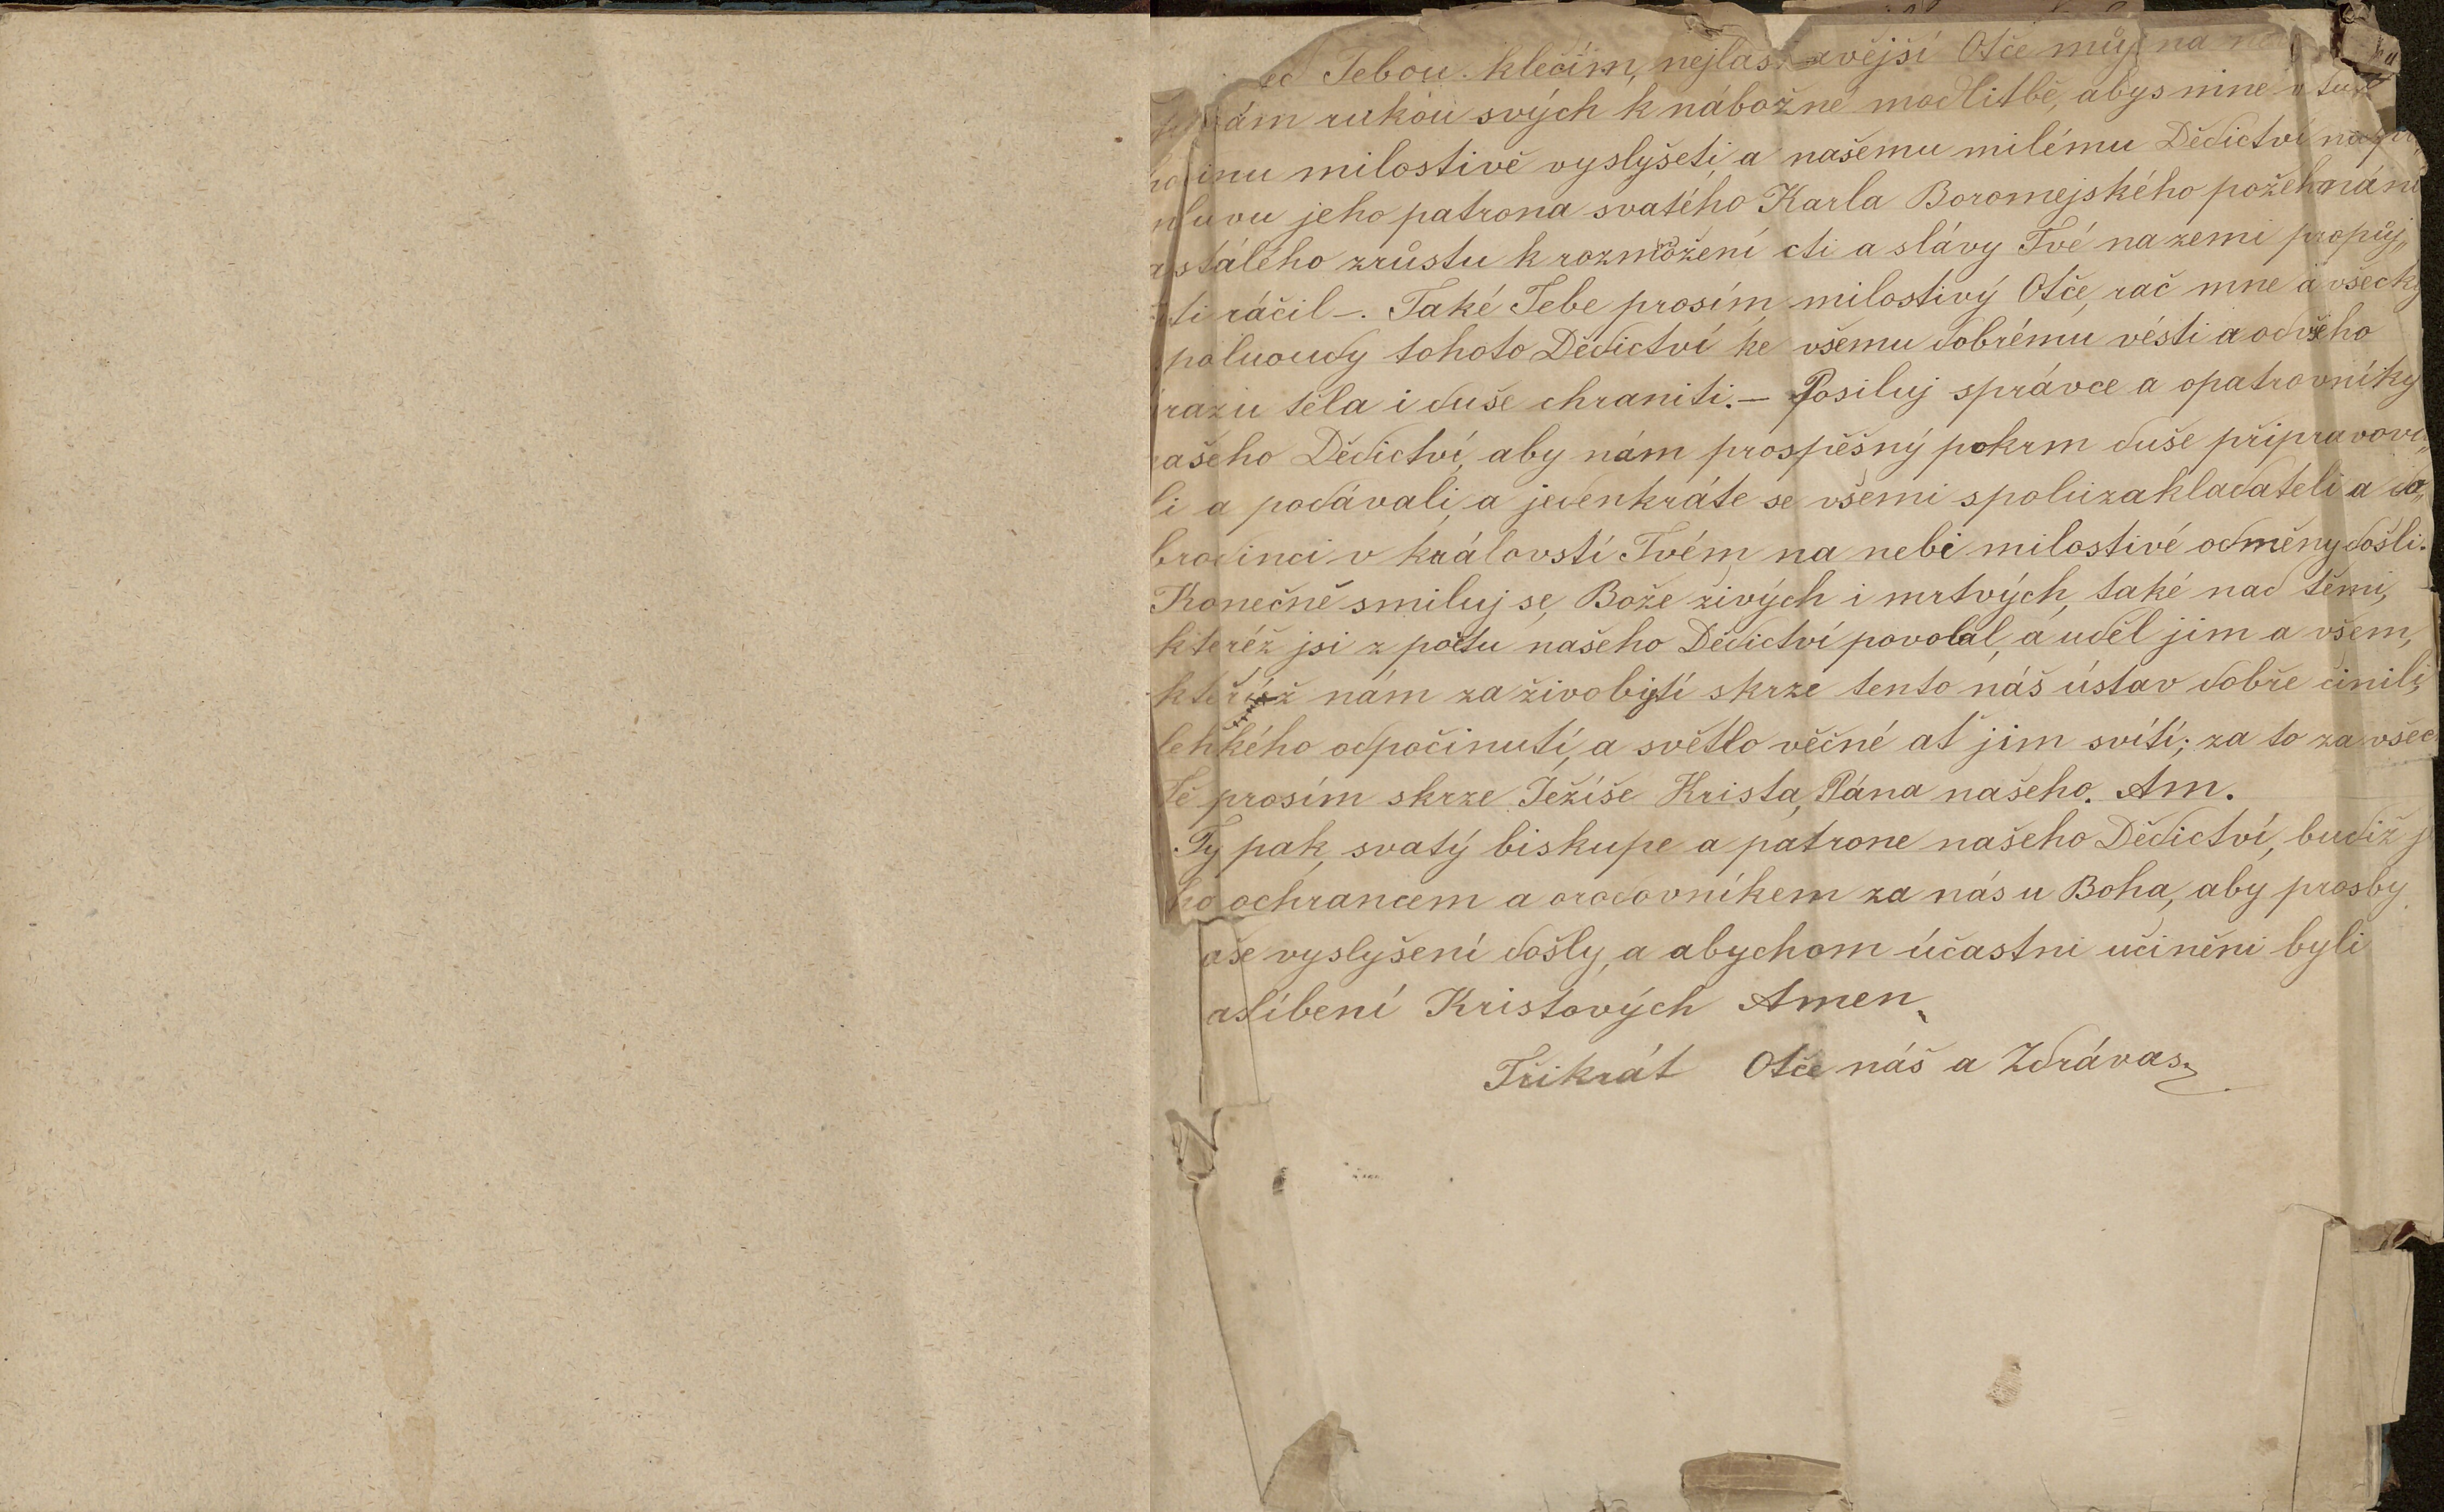 ed Tebou klečím, nejlaskavější Otče můj na
rukou svých k nábožné modlitbě, abys mne
milostivě vyslyšeti, a našemu milému Dědictví na
mluvu jeho patrona svatého Karla Boromejského požehnání
a stálého zrůstu k rozmnožení cti a slávy Tvé na zemi propůj„
ti ráčil –. Také Tebe prosím milostivý Otče, rač mne a všecky
poluoudy tohoto Dědictví ke všemu dobrému vésti a odevšeho
razu těla i duše chraniti. – Posiluj správce a opatrovníky
našeho Dědictví, aby nám prospěšný pokrm duše připravova„
li a podávali, a jedenkráte se všemi spoluzakladateli a do„
brodinci v královstí Tvém na nebi milostivé odměny došli.
Konečně smiluj se, Bože živých i mrtvých, také nad těmi,
kteréž jsi z počtu našeho Dědictví povolal, a uděl jim a všem,
kteříž nám za živobytí skrze tento náš ústav dobře činili,
lehkého odpočinutí, a světlo věčné ať jim svítí; za to za všec
Tě prosím skrze Ježíše Krista, Pána našeho. Am.
Ty pak, svatý biskupe a patrone našeho Dědictví, budiž j
ho ochrancem a orodovníkem za nás u Boha, aby prosby
aše vyslyšení došly, a abychom účastni učiněni byli
aslíbení Kristových Amen
Třikrát Otče náš a Zdrávas